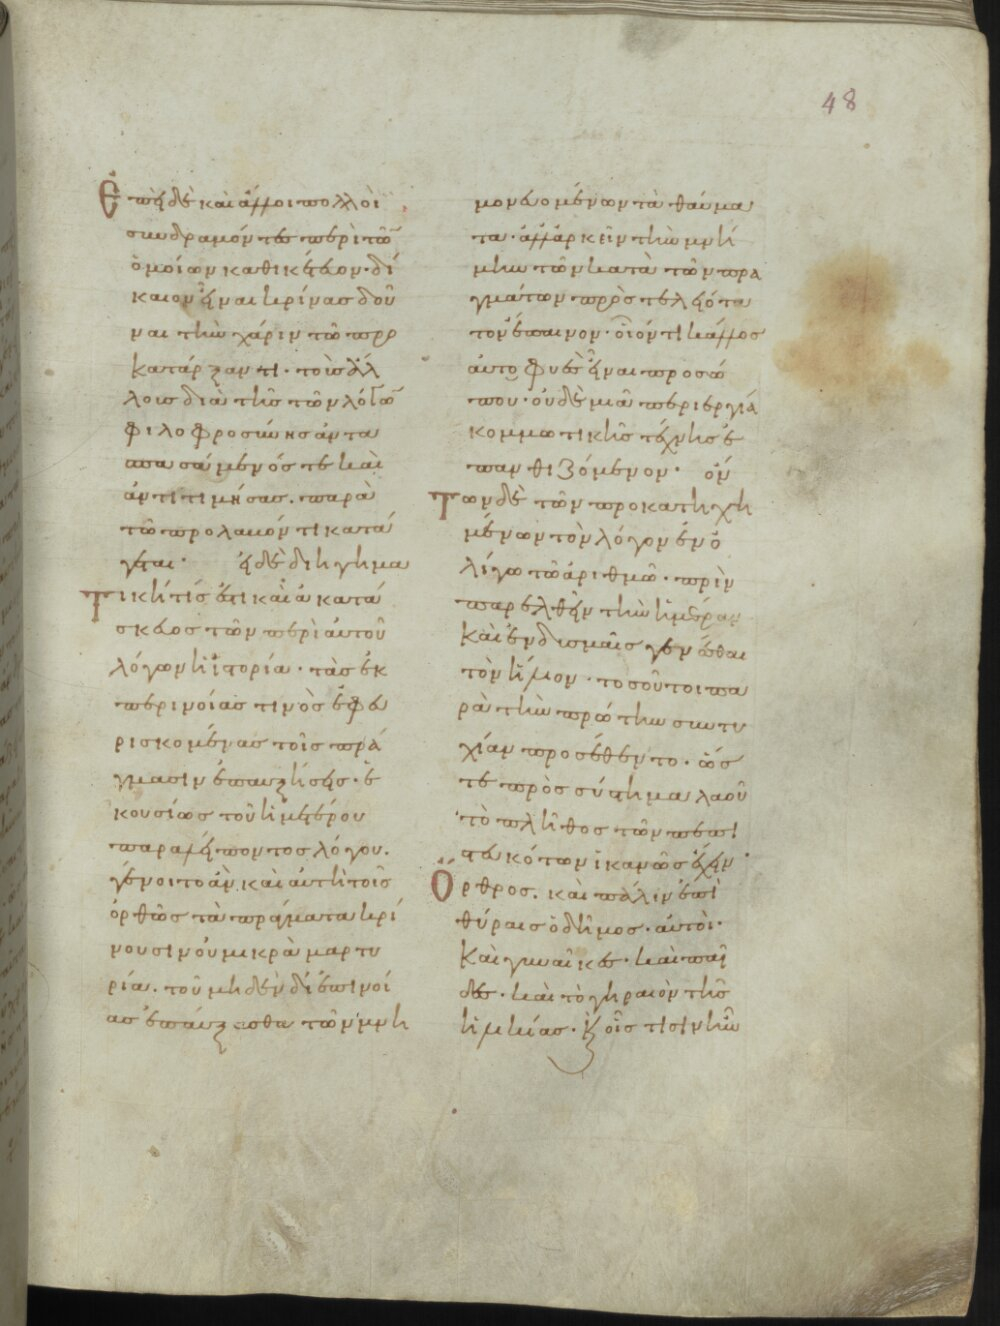 48
Ἐπεὶ δὲ καὶ ἄλλοι πολλοὶ
συνδραμόντες περὶ τῶν
ὁμοίων καθικέτευον· δί
καιον εἶναι κρίνας δοῦ
ναι τὴν χάριν τῶ προ
κατάρξαντι· τοῖς ἄλ
λοις διὰ τῆς τῶν λόγων
φιλοφροσύνης ἀντα
σπασάμενός τε καὶ
ἀντιτιμήσας. παρὰ
τῶ προλαμόντι κατά
γεται· εἰ δὲ διήγημα
τική τίς ἐστι καὶ ἀκατά
σκευος τῶν περὶ αὐτοῦ
λόγων ἡ ἱστορία· τὰς ἐκ
περινοίας τινὸς ἐφευ
ρισκομένας τοῖς πρά
γμασιν ἐπαυξήσεις· ἑ
κουσίως τοῦ ἡμετέρου
παραλείποντος λόγου.
γένοιτο ἂν καὶ αὐτὴ τοῖς
ὀρθῶς τὰ πράγματα κρί
νουσιν οὐ μικρὰ μαρτυ
ρία. τοῦ μηδὲν δι' ἐπινοί
ας ἐπαύξεσθαι τῶν μνη
μονευομένων τὰ θαύμα
τα· ἀλλ' ἀρκεῖν τὴν μνή
μην τῶν κατὰ τῶν πρα
γμάτων πρὸς τελεότα
τον ἔπαινον· οἷόν τι κάλλος
αὐτοφυὲς εἶναι προσώ
που· οὐδὲ μιᾶ περιεργία
κομμωτικῆς τέχνης ἐ
πανθιζόμενον· οὐν
Τῶν δὲ τῶν προκατηχη
μένων τὸν λόγον ἐν ὀ
λίγω τῶ ἀριθμῶ· πρὶν
παρελθεῖν τὴν ἡμέραν
καὶ ἐν δυσμαῖς γενέσθαι
τὸν ἥλιον· τοσοῦτοι πα
ρὰ τὴν πρώτην συντυ
χίαν προσέθεντο· ὥσ
τε πρὸς σύστημα λαοῦ
τὸ πλῆθος τῶν πεπι
στευκότων ἱκανῶς ἔχειν·
Ὄρθρος. καὶ πάλιν ἐπὶ
θύραις ὁ δῆμος· αὐτοὶ·
καὶ γυναῖκες· καὶ παῖ
δες· καὶ τὸ γηραιὸν τῆς
ἡλικίας· κ(αὶ) οἷς τισιν ἦν